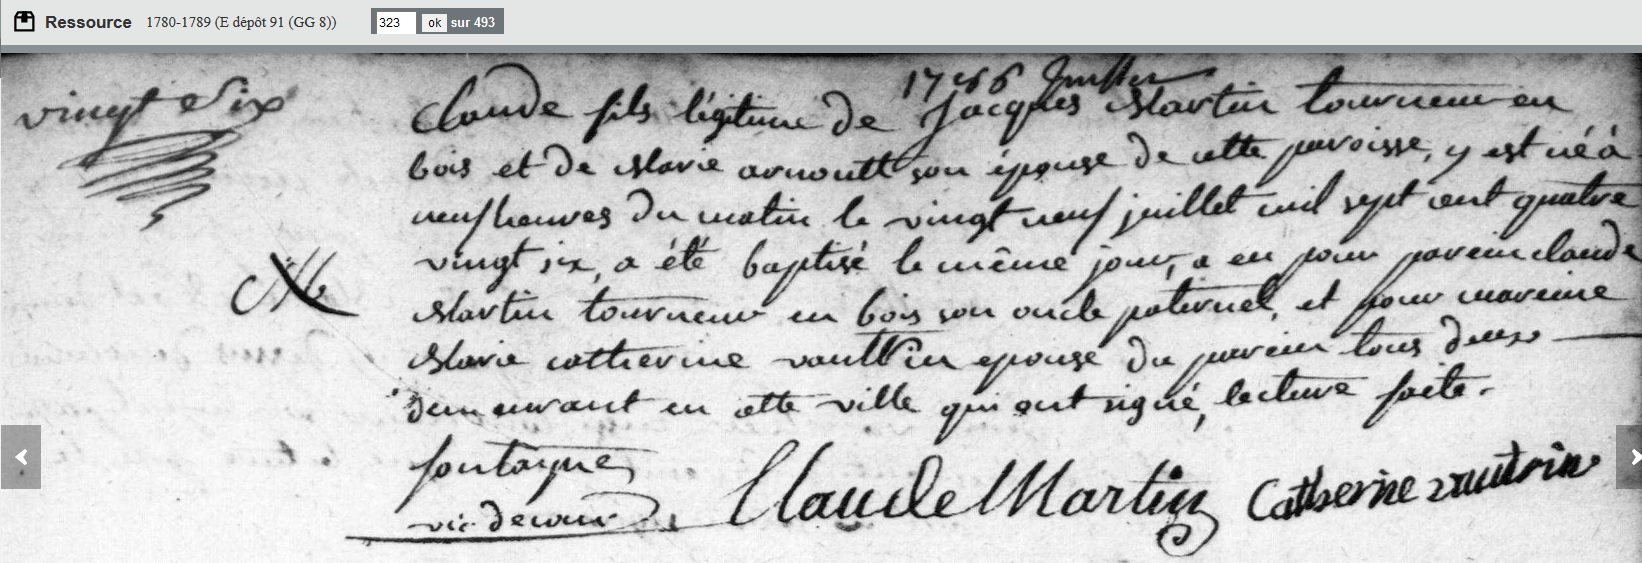 Ressource 1780-1789 (E dépôt 91 (GG 8)) 323 ok sur 493
1786 Juillet
vingt Six
Claude fils légitime de Jacques Martin tourneur en
bois et de Marie arnoult son épouse de cette paroisse, y est né à
neuf heures du matin le vingt neuf juillet mil sept cent quatre
vingt six, a été baptisé le même jour, a eu pour parein claude
Martin tourneur en bois son oncle paternel, et pour mareine
Marie catherine vautrin epouse du parein tous deux
demeurant en cette ville qui ont signé, lecture faite.
fontayne
vic. de cour
Claude Martin Catherine vautrin